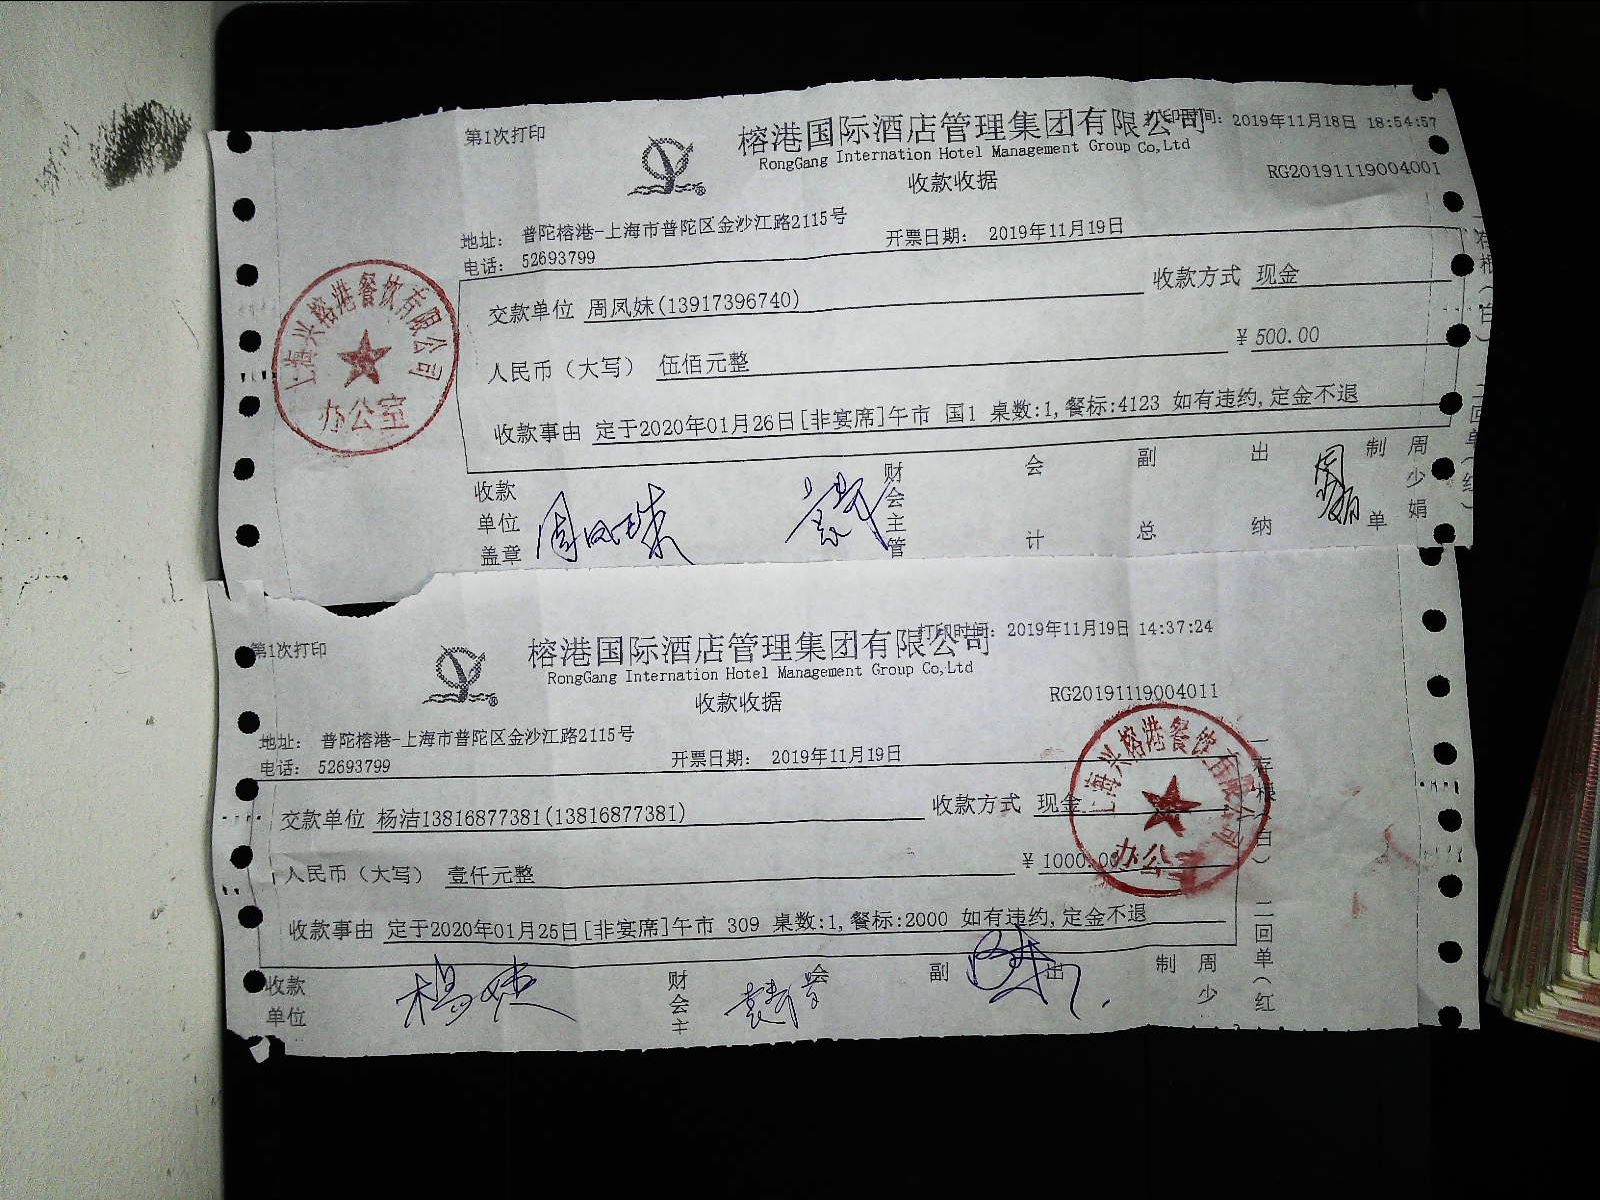 第1次打印
榕港国际酒店管理集团有限公司
打印时间: 2019年11月18日 18:54:57
RongGang Internation Hotel Management Group Co,Ltd
收款收据
RG20191119004001
地址: 普陀榕港-上海市普陀区金沙江路2115号
电话: 52693799
开票日期: 2019年11月19日
收款方式 现金
交款单位 周凤妹(13917396740)
人民币（大写） 伍佰元整
¥ 500.00
收款事由 定于2020年01月26日[非宴席]午市 国1 桌数:1,餐标:4123 如有违约,定金不退
收款单位盖章
财会主管
会计
副总
出纳
制单
周少娟
上海兴榕港餐饮有限公司
办公室
一存根(白) 二回单(红)
第1次打印
榕港国际酒店管理集团有限公司
打印时间: 2019年11月19日 14:37:24
RongGang Internation Hotel Management Group Co,Ltd
收款收据
RG20191119004011
地址: 普陀榕港-上海市普陀区金沙江路2115号
电话: 52693799
开票日期: 2019年11月19日
交款单位 杨洁13816877381(13816877381)
收款方式 现金
人民币（大写） 壹仟元整
¥ 1000.00
收款事由 定于2020年01月25日[非宴席]午市 309 桌数:1,餐标:2000 如有违约,定金不退
收款单位
财会主
会
副
出
制
周少
上海兴榕港餐饮有限公司
办公
一存根(白) 二回单(红